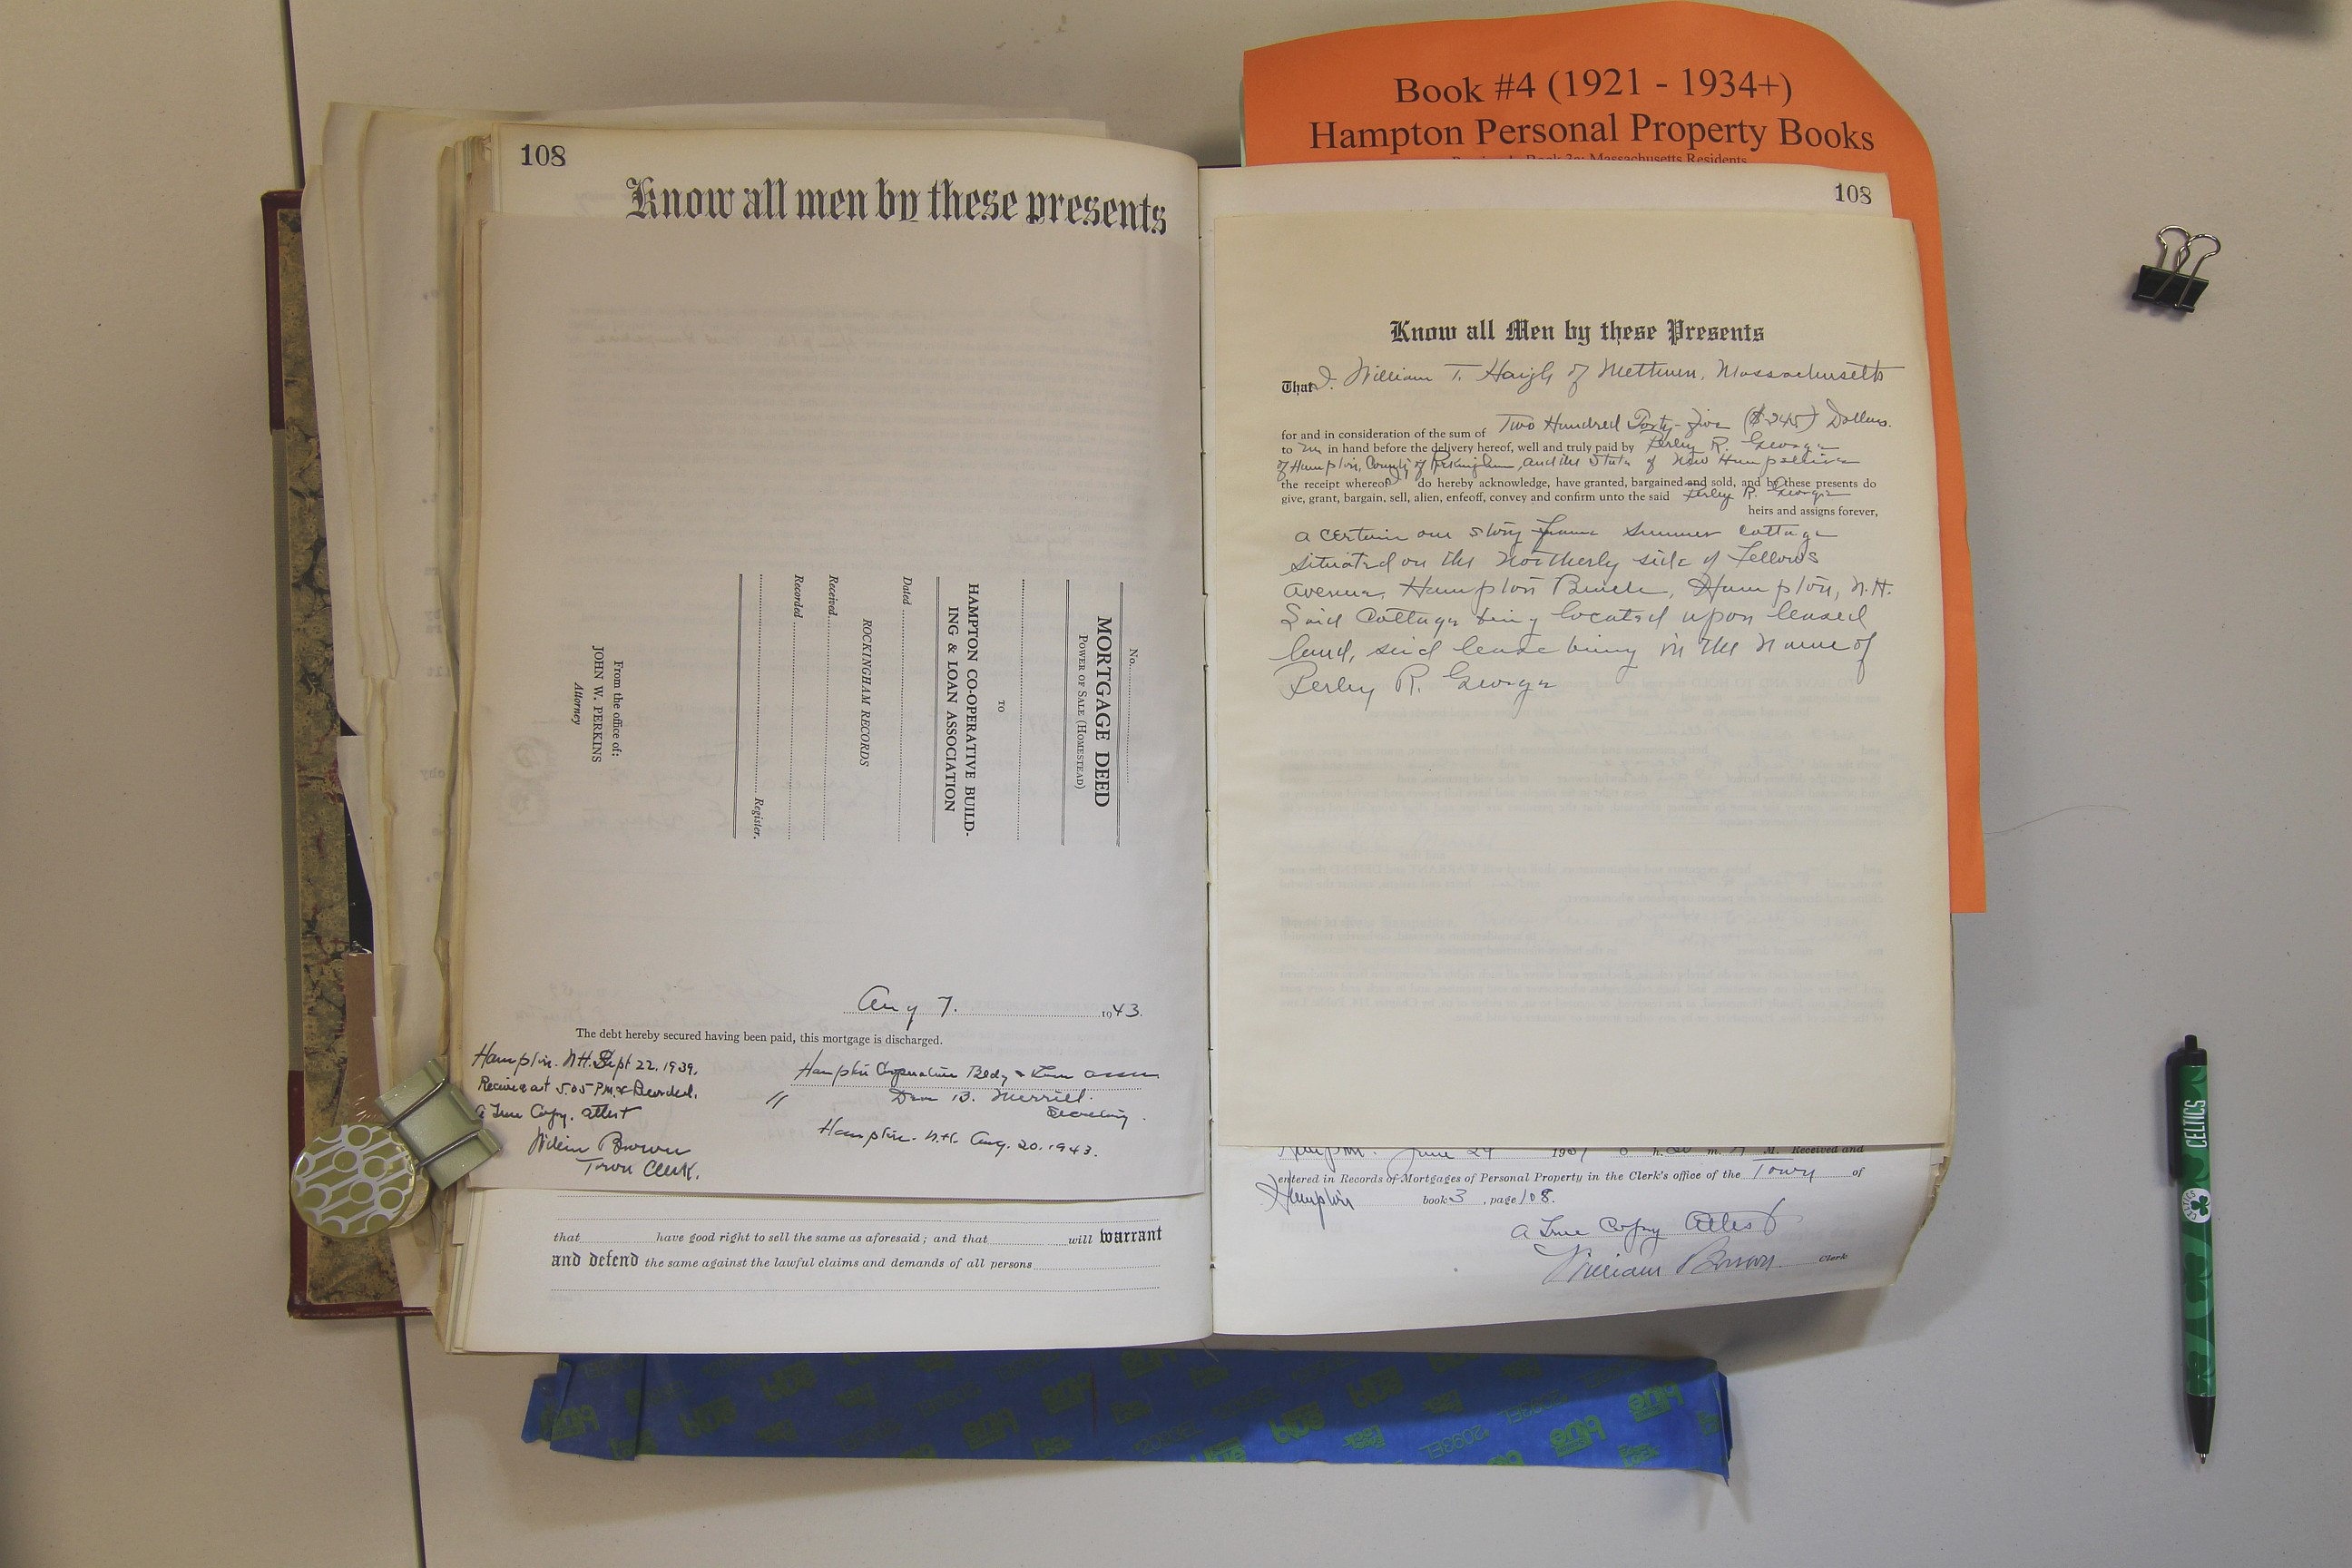 Book #4 (1921 - 1934+)
Hampton Personal Property Books
108
Know all men by these presents
No.
MORTGAGE DEED
POWER OF SALE (HOMESTEAD)
TO
HAMPTON CO-OPERATIVE BUILD-
ING & LOAN ASSOCIATION
Dated
ROCKINGHAM RECORDS
Received
Recorded
Register.
From the office of:
JOHN W. PERKINS
Attorney
Aug 7. 1943.
The debt hereby secured having been paid, this mortgage is discharged.
Hampton. N.H. Sept 22. 1939.
Received at 5.05 P.M. & Recorded.
A True Copy. attest
William Brown
Town Clerk.
Hampton Cooperative Bldg & Loan Assn
" Dean B. Merrill.
Secretary.
Hampton. N.H. Aug. 20. 1943.
that have good right to sell the same as aforesaid; and that will warrant
and defend the same against the lawful claims and demands of all persons
108
Know all Men by these Presents
That I. William T. Haigh of Methuen, Massachusetts
for and in consideration of the sum of Two Hundred Forty-five ($245) Dollars.
to me in hand before the delivery hereof, well and truly paid by Perley R. George
of Hampton, County of Rockingham, and the State of New Hampshire
the receipt whereof I do hereby acknowledge, have granted, bargained and sold, and by these presents do
give, grant, bargain, sell, alien, enfeoff, convey and confirm unto the said Perley R. George
heirs and assigns forever,
a certain one story frame summer cottage
situated on the Northerly side of Fellows
Avenue, Hampton Beach, Hampton, N.H.
Said Cottage being located upon leased
land, said lease being in the name of
Perley R. George
Hampton. June 24 M. Received and
entered in Records of Mortgages of Personal Property in the Clerk's office of the Town of
Hampton book 3, page 108.
A True Copy Attest
William Brown. Clerk
CELTICS
CELTICS